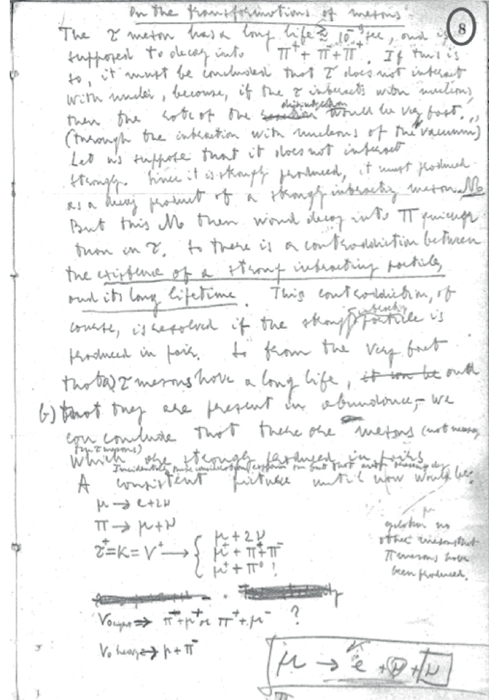 On the transformations of mesons
8
The τ meson has a long life ≳ 10⁻⁹ sec, and is
supposed to decay into π⁺ + π⁻ + π⁺. If this is
so, it must be concluded that τ does not interact
with nuclei, because, if the τ interacts with nucleons
then the rate of the disintegration would be very fast.
(through the interaction with nucleons of the vacuum)
Let us suppose that it does not interact
strongly. Since it is strongly produced, it must produced
as a decay product of a strongly interacting meson M.
But this M then would decay into π quicker
than in τ. So there is a contradiction between
the existence of a strong interacting particle,
and its long lifetime. This contradiction, of
course, is resolved if the strongly interacting particle is
produced in pair. So from the very fact
that a) τ mesons have a long life, and
b) that they are present in abundance, we
can conclude that there are mesons (not necess.
τ mesons)
which are strongly produced in pairs
A consistent picture until now would be:
μ → e + 2ν
π → μ + ν
τ⁺ = K = V⁺ → { μ + 2ν
μ⁺ + π⁺ π⁻
μ⁺ + π⁰ !
no
other mesons but
π mesons have
been produced.
⇒ π⁻ + μ⁺ or π⁺ + μ⁻ ?
V₀ heavy → p + π⁻
μ → e + ν + ν
π